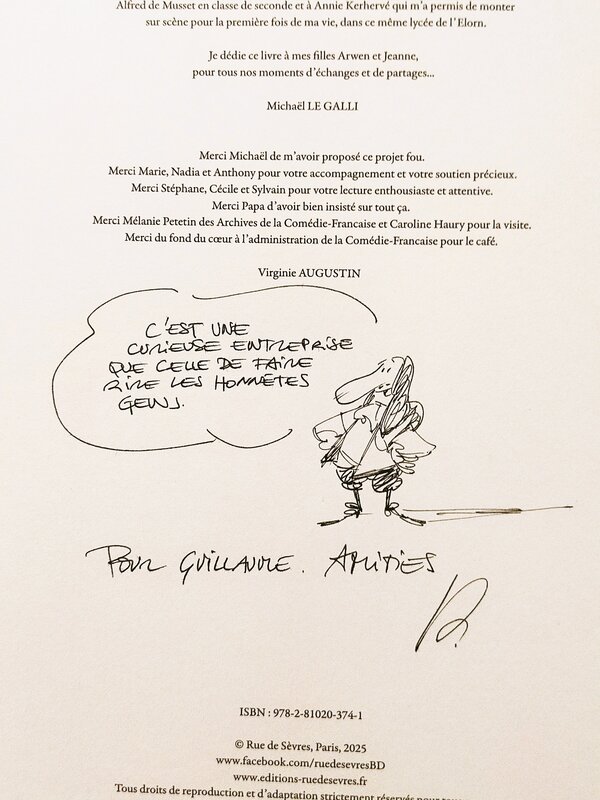 Alfred de Musset en classe de seconde et à Annie Kerhervé qui m'a permis de monter
sur scène pour la première fois de ma vie, dans ce même lycée de l'Elorn.
Je dédie ce livre à mes filles Arwen et Jeanne,
pour tous nos moments d'échanges et de partages...
Michaël LE GALLI
Merci Michaël de m'avoir proposé ce projet fou.
Merci Marie, Nadia et Anthony pour votre accompagnement et votre soutien précieux.
Merci Stéphane, Cécile et Sylvain pour votre lecture enthousiaste et attentive.
Merci Papa d'avoir bien insisté sur tout ça.
Merci Mélanie Petetin des Archives de la Comédie-Francaise et Caroline Haury pour la visite.
Merci du fond du cœur à l'administration de la Comédie-Francaise pour le café.
Virginie AUGUSTIN
C'EST UNE
CURIEUSE ENTREPRISE
QUE CELLE DE FAIRE
RIRE LES HONNÊTES
GENS.
POUR GUILLAUME. AMITIÉS
ISBN : 978-2-81020-374-1
© Rue de Sèvres, Paris, 2025
www.facebook.com/ruedesevresBD
www.editions-ruedesevres.fr
Tous droits de reproduction et d'adaptation strictement réservés pour